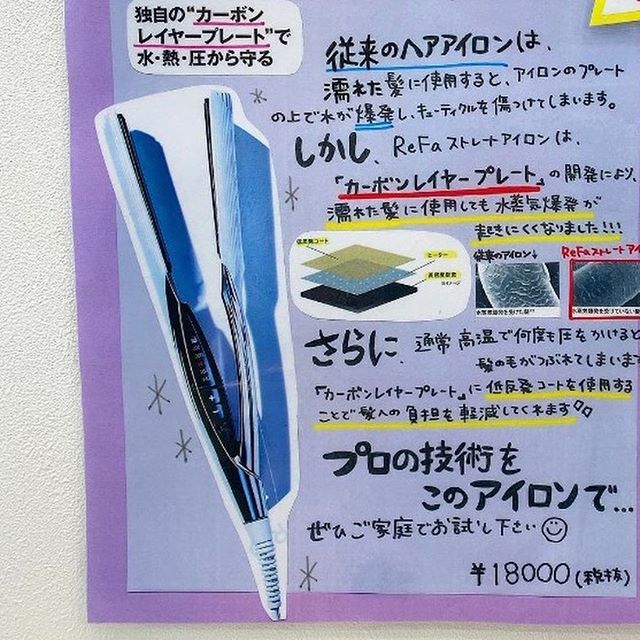 独自の"カーボン
レイヤープレート"で
水・熱・圧から守る
従来のヘアアイロンは、
濡れた髪に使用すると、アイロンのプレート
の上で水が爆発し、キューティクルを傷つけてしまいます。
しかし、ReFaストレートアイロンは、
「カーボンレイヤープレート」の開発により、
濡れた髪に使用しても水蒸気爆発が
起きにくくなりました!!!
低反発コート
ヒーター
※イメージ
従来のアイロン↓
ReFaストレートアイ
さらに、通常高温で何度も圧をかけると
髪の毛がつぶれてしまいま
「カーボンレイヤープレート」に低反発コートを使用する
ことで髪への負担を軽減してくれます
プロの技術を
このアイロンで...
ぜひご家庭でお試し下さい
¥18000(税抜)